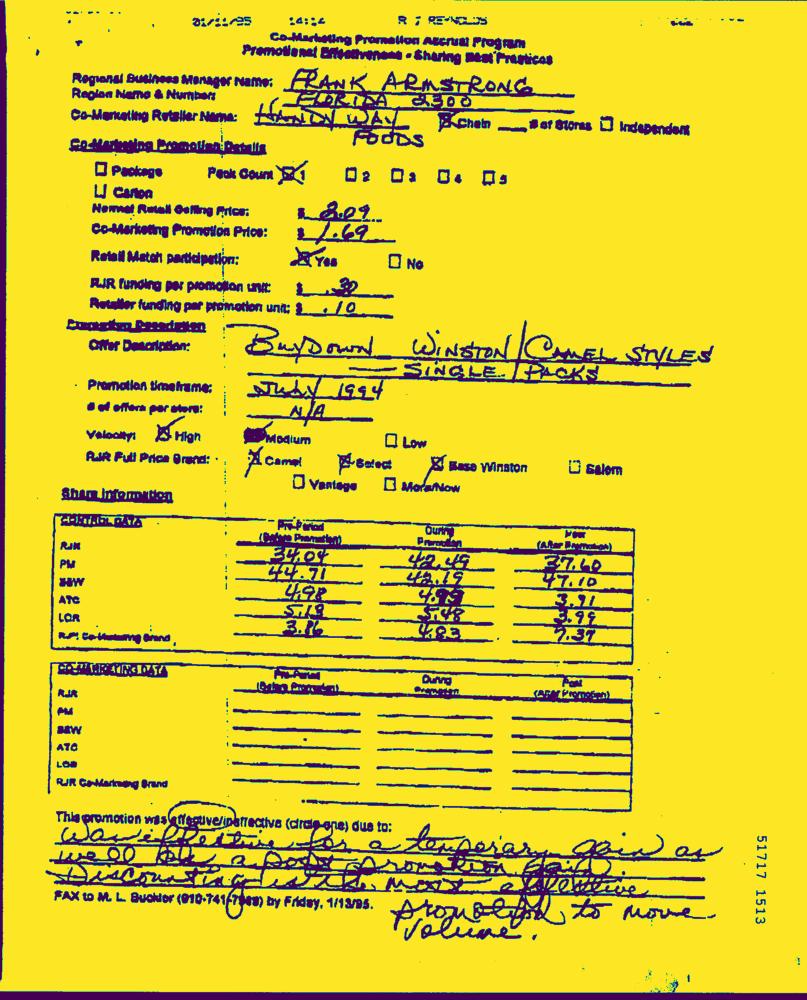 01/11/95 14:14 R J REYNOLDS
Co-Marketing Promotion Accrual Program
Promotional Effectiveness - Sharing Best Practices
Regional Business Manager Name: FRANK ARMSTRONG
Region Name & Number: FLORIDA 2300
Co-Marketing Retailer Name: HANDY WAY FOODS ☒ Chain ___ # of Stores ☐ Independent
Co-Marketing Promotion Details
☐ Package Pack Count ☒ 1 ☐ 2 ☐ 3 ☐ 4 ☐ 5
☐ Carton
Normal Retail Selling Price: $ 2.09
Co-Marketing Promotion Price: $ 1.69
Retail Match participation: ☒ Yes ☐ No
RJR funding per promotion unit: $ .30
Retailer funding per promotion unit: $ .10
Promotion Description
Offer Description: BUYDOWN WINSTON/CAMEL STYLES
SINGLE PACKS
Promotion timeframe: JULY 1994
# of offers per store: N/A
Velocity: ☒ High Medium ☐ Low
RJR Full Price Brand: ☒ Camel ☒ Select ☒ Base Winston ☐ Salem
☐ Vantage ☐ More/Now
Share Information
CONTROL DATA Pre-Period (Before Promotion) During Promotion (After Promotion)
RJR 34.04 42.49 37.60
PM 44.71 42.19 47.10
B&W 4.98 3.91
ATC 5.13 5.48 3.99
LOR 3.86 4.83 7.37
RJR Co-Marketing Brand
CO-MARKETING DATA Pre-Period (Before Promotion) During Promotion Post (After Promotion)
RJR
PM
B&W
ATC
LOR
RJR Co-Marketing Brand
This promotion was effective/ineffective (circle one) due to:
Was effective for a temporary gain as
well as a post promotion gain.
Discounting is the most effective
promotion to move
volume.
FAX to M. L. Buckler (910-741-) by Friday, 1/13/95.
51717 1513